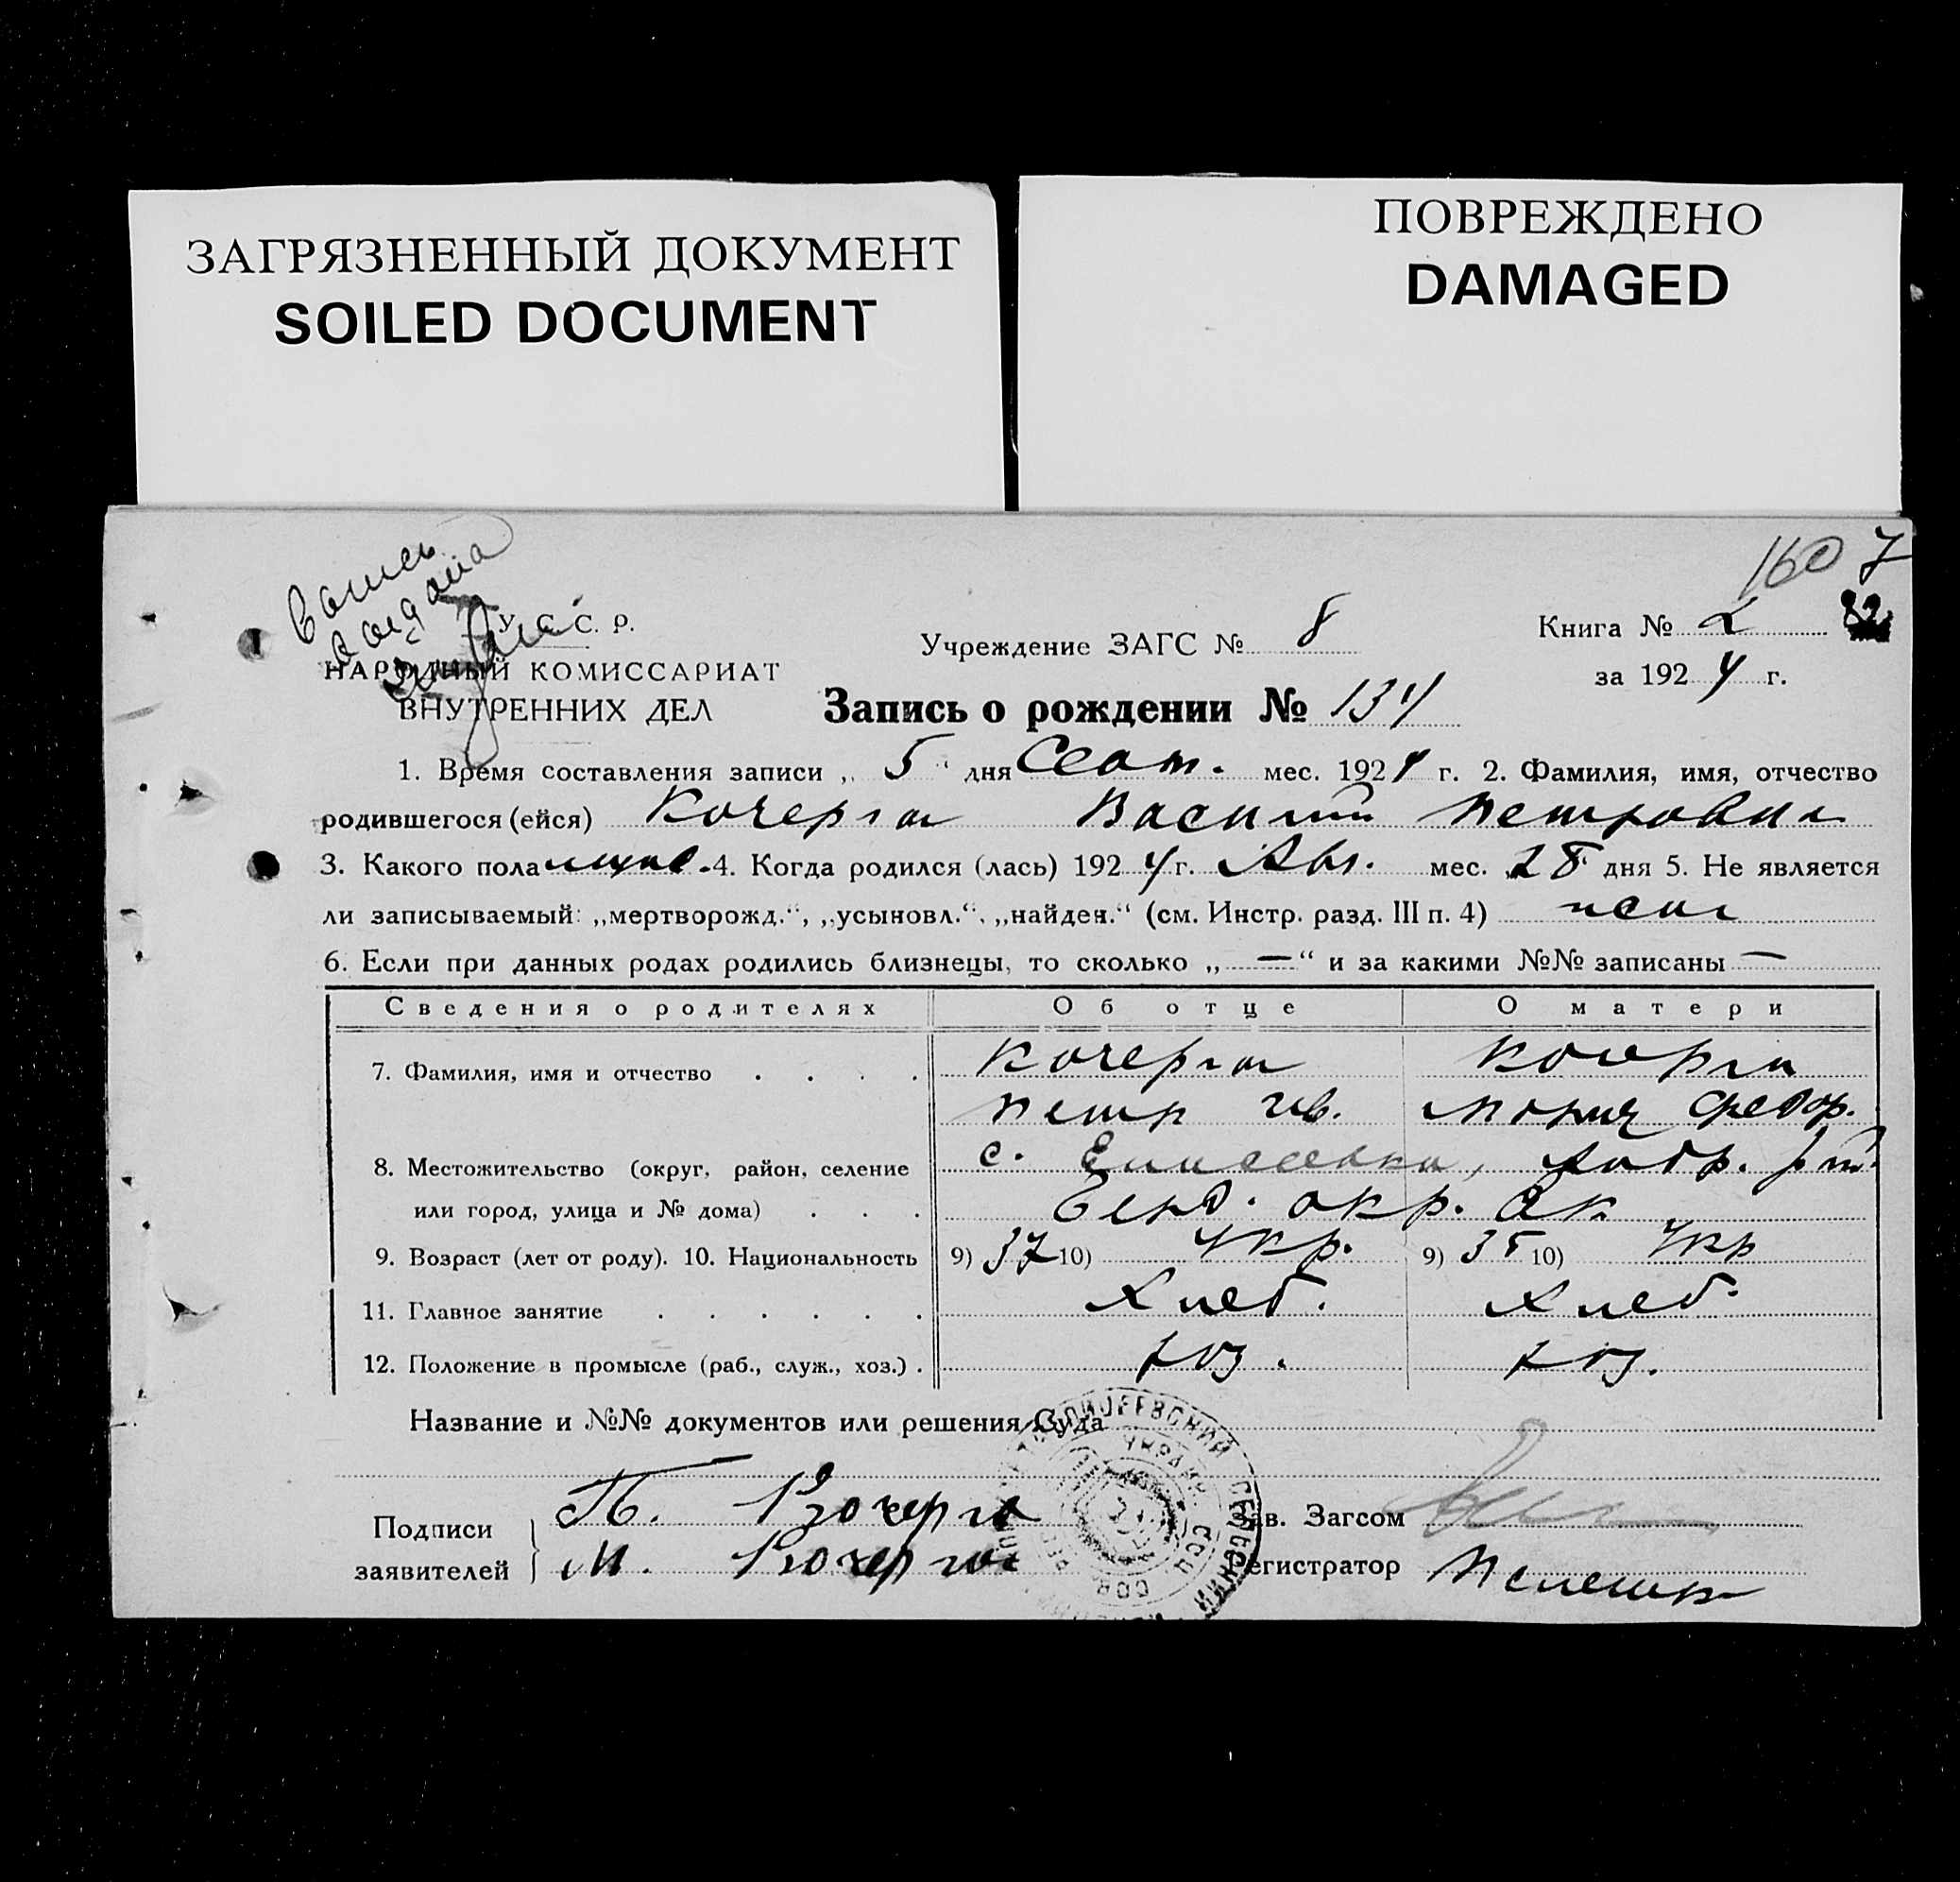 ЗАГРЯЗНЕННЫЙ ДОКУМЕНТ
SOILED DOCUMENT
ПОВРЕЖДЕНО
DAMAGED
160 7
82
У. С. С. Р.
НАРОДНЫЙ КОМИССАРИАТ
ВНУТРЕННИХ ДЕЛ
Учреждение ЗАГС № 8
Книга № 2
за 1924 г.
Запись о рождении № 134
1. Время составления записи „ 5 " дня Сент. мес. 1924 г. 2. Фамилия, имя, отчество
родившегося (ейся) Кочерга Василий Петрович
3. Какого пола муж. 4. Когда родился (лась) 1924 г. Авг. мес. 28 дня 5. Не является
ли записываемый: „мертворожд.“, „усыновл.“, „найден.“ (см. Инстр. разд. III п. 4)
6. Если при данных родах родились близнецы, то сколько „ — “ и за какими №№ записаны —
Сведения о родителях Об отце О матери
7. Фамилия, имя и отчество . . . . Кочерга Кочерга
Петр Ив. Мария Федор.
8. Местожительство (округ, район, селение с.
или город, улица и № дома) . . . окр.
9. Возраст (лет от роду). 10. Национальность 9) 37 10) Укр. 9) 35 10) Укр
11. Главное занятие . . . . . . Хлеб. Хлеб.
12. Положение в промысле (раб., служ., хоз.) . хоз. хоз.
Название и №№ документов или решения Суда
Подписи заявителей
П. Кочерга
М. Кочерга
Зав. Загсом
Регистратор